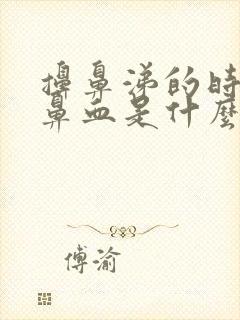 擤鼻涕的時
鼻血是什麼
傅渝